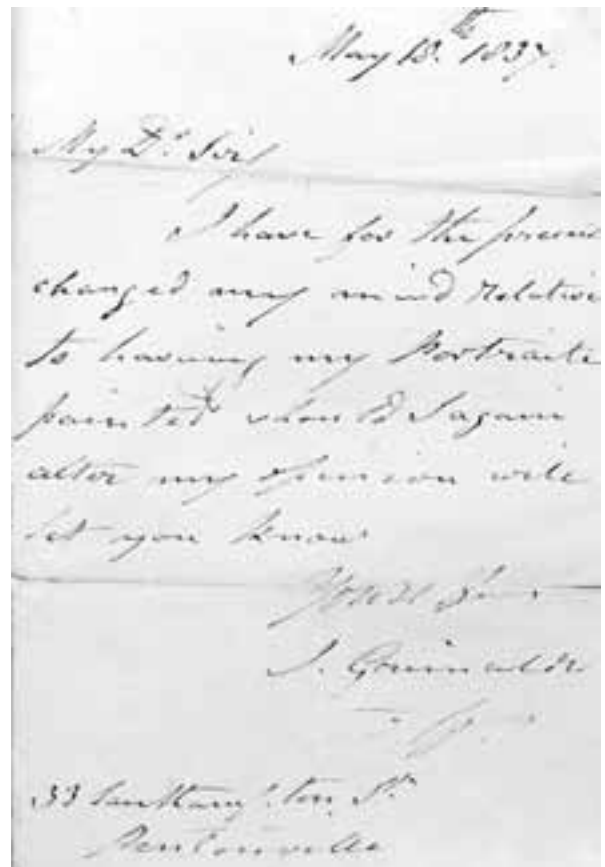 May 18th 1837.
My Dr Sir
I have for the present
changed my mind Relative
to having my Portraite
painted should I again
alter my opinion will
let you know
Yours
J. Grimaldi
33 Southampton St
Pentonville